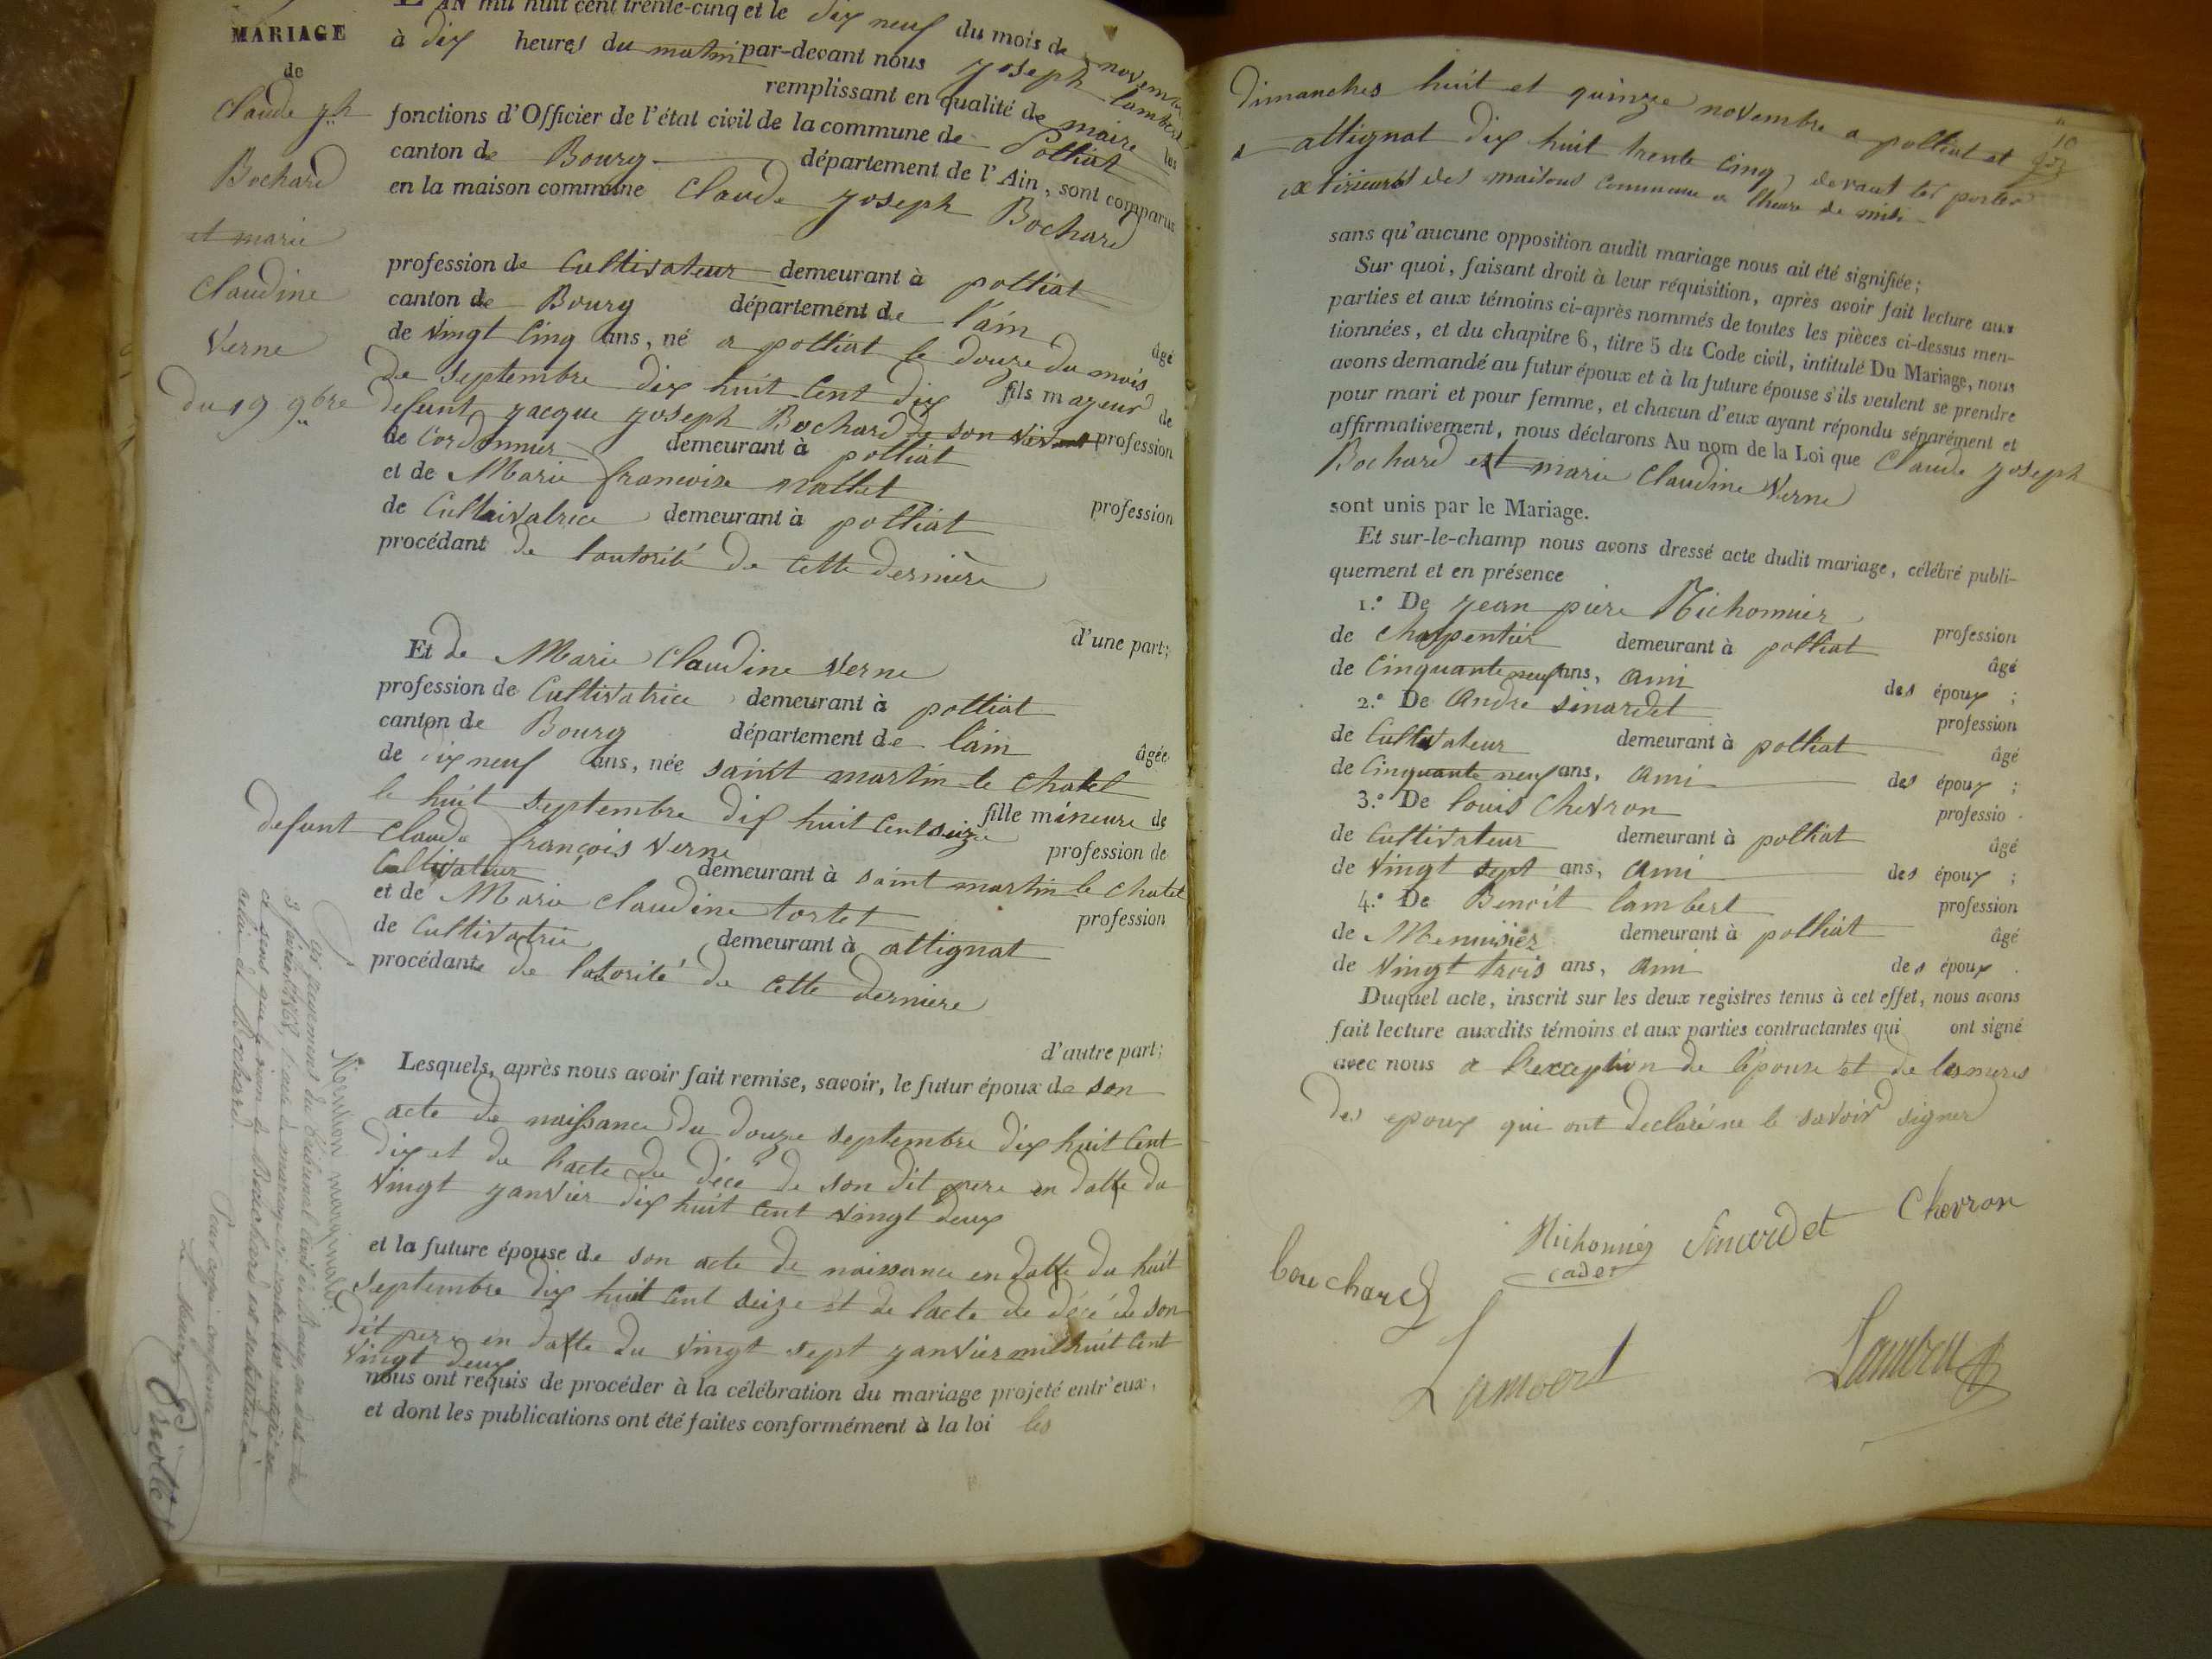 MARIAGE
de
Claude jph
Bochard
et marie
Claudine
Verne
du 19 9bre
L'AN mil huit cent trente-cinq et le dix neuf du mois de novembre
à dix heures du matin par-devant nous Joseph Lambert
remplissant en qualité de maire les
fonctions d'Officier de l'état civil de la commune de Polliat
canton de Bourg département de l'Ain, sont comparus
en la maison commune Claude Joseph Bochard
profession de Cultivateur demeurant à polliat
canton de Bourg département de l'ain âgé
de vingt cinq ans, né a polliat le douze du mois
de septembre dix huit cent dix fils mayeur de
defunt Jacque Joseph Bochard de son vivant profession
de Cordonnier demeurant à polliat
et de Marie francoise mallet profession
de Cultaivatrice demeurant à polliat
procédant de l'autorité de cette dernière
d'une part;
Et de Marie Claudine Verne
profession de Cultivatrice demeurant à polliat
canton de Bourg département de l'ain âgée
de dix neuf ans, née saint martin le chatel
le huit septembre dix huit cent seize fille mineure de
defunt Claude françois Verne profession de
Cultivateur demeurant à saint martin le chatel
et de Marie Claudine tortet profession
de Cultivatrice demeurant à attignat
procédante de l'atorité de cette derniere
d'autre part;
Lesquels, après nous avoir fait remise, savoir, le futur époux de son
acte de naissance du douze septembre dix huit cent
dix et de l'acte de décè de son dit pere en datte du
vingt janvier dix huit cent vingt deux
et la future épouse de son acte de naissance en datte du huit
septembre dix huit cent seize et de l'acte de décé de son
dit pere en datte du vingt sept janvier mil huit cent
vingt deux
nous ont requis de procéder à la célébration du mariage projeté entr'eux,
et dont les publications ont été faites conformément à la loi les
Mention marginale:
Par jugement du tribunal civil de Bourg en date du
l'acte de mariage ci-contre
ce sens que le nom de Bouchard est substitué à
celui de Bochard
Pour copie conforme
Le Maire
dimanches huit et quinze novembre a polliat et
a attignat dix huit trente cinq, devant les portes
extirieures des maisons commune a l'heure de midi
sans qu'aucune opposition audit mariage nous ait été signifiée;
Sur quoi, faisant droit à leur réquisition, après avoir fait lecture aux
parties et aux témoins ci-après nommés de toutes les pièces ci-dessus men-
tionnées, et du chapitre 6, titre 5 du Code civil, intitulé Du Mariage, nous
avons demandé au futur époux et à la future épouse s'ils veulent se prendre
pour mari et pour femme, et chacun d'eux ayant répondu séparément et
affirmativement, nous déclarons Au nom de la Loi que Claude Joseph
Bochard et marie Claudine Verne
sont unis par le Mariage.
Et sur-le-champ nous avons dressé acte dudit mariage, célébré publi-
quement et en présence
1.° De Jean piere Nichonnier profession
de Charpentier demeurant à polliat âgé
de Cinquante neuf ans, ami des époux;
2.° De André sinardet profession
de Cultivateur demeurant à polliat âgé
de Cinquante neuf ans, ami des époux;
3.° De louis Chevron professio
de Cultivateur demeurant à polliat âgé
de vingt sept ans, ami des époux;
4.° De Benoit lambert profession
de Menuisier demeurant à polliat âgé
de vingt trois ans, ami des époux.
Duquel acte, inscrit sur les deux registres tenus à cet effet, nous avons
fait lecture auxdits témoins et aux parties contractantes qui ont signé
avec nous a l'exception de l'épouse et de les meres
des epoux qui ont déclaré ne le savoir signer
bouchard
Nichonnier
cadet
Sinardet
Chevron
Lambert
Lambert